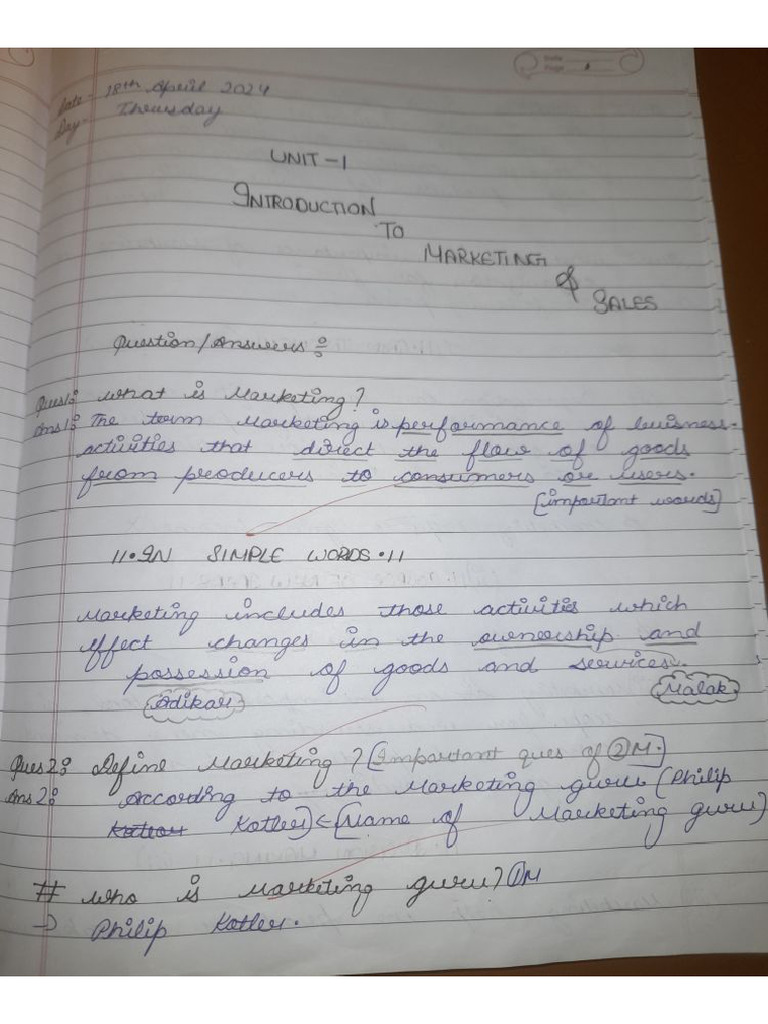 Date- 18th April 2024
Day- Thursday
UNIT-1
INTRODUCTION
TO
MARKETING
&
SALES
Question/Answers:
Ques1: What is Marketing?
Ans1: The term Marketing is performance of buisness
activities that direct the flow of goods
from producers to consumers or users.
[important words]
11. IN SIMPLE WORDS. 11
Marketing includes those activities which
effect changes in the ownership and
possession of goods and services.
Adikar
Malak
Ques2: Define Marketing? [Important ques of ② M.]
Ans2: According to the Marketing guru (Philip
Kotler) < [Name of Marketing guru]
# Who is Marketing guru? ① M
→ Philip Kotler.